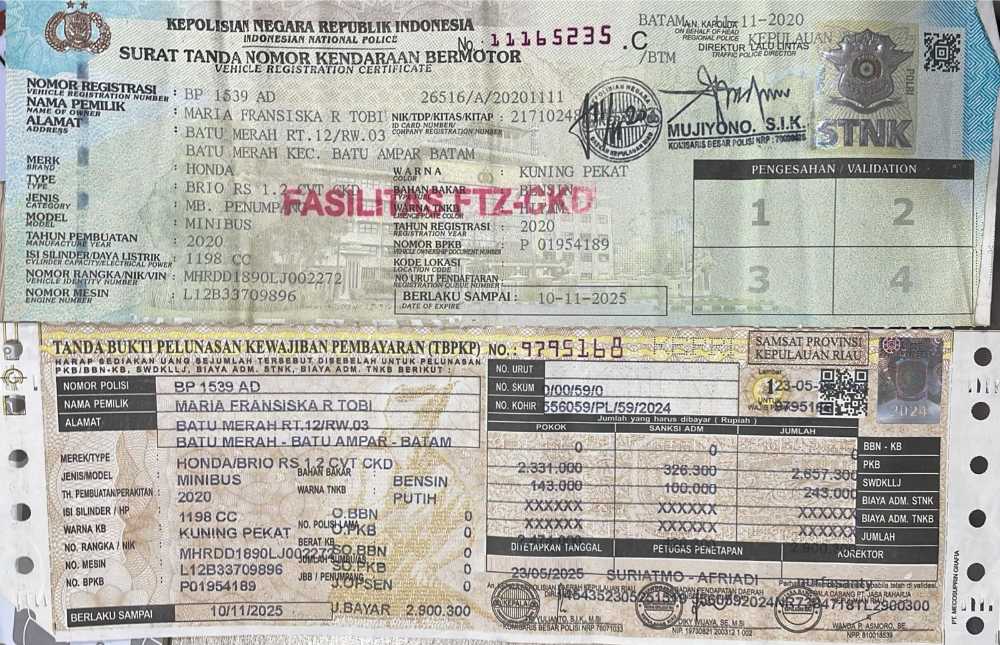 KEPOLISIAN NEGARA REPUBLIK INDONESIA
INDONESIAN NATIONAL POLICE
SURAT TANDA NOMOR KENDARAAN BERMOTOR
VEHICLE REGISTRATION CERTIFICATE
No. 11165235 .C
/BTM
BATAM 11-11-2020
A.N. KAPOLDA KEPULAUAN
ON BEHALF OF HEAD REGIONAL POLICE
DIREKTUR LALU LINTAS
TRAFFIC POLICE DIRECTOR
MUJIYONO. S.I.K.
STNK
POLRI
NOMOR REGISTRASI : BP 1539 AD 26516/A/20201111
VEHICLE REGISTRATION NUMBER
NAMA PEMILIK : MARIA FRANSISKA R TOBI NIK/TDP/KITAS/KITAP : 2171024
NAME OF OWNER ID CARD NUMBER/ COMPANY REGISTRATION NUMBER
ALAMAT : BATU MERAH RT.12/RW.03
ADDRESS
BATU MERAH KEC. BATU AMPAR BATAM
MERK : HONDA WARNA : KUNING PEKAT
BRAND COLOR
TYPE : BRIO RS 1.2 CVT CKD BAHAN BAKAR : BENSIN
TYPE TYPE FUEL
FASILITAS FTZ-CKD
JENIS : MB. PENUMPANG WARNA TNKB : HITAM
CATEGORY LICENCE PLATE COLOR
MODEL : MINIBUS TAHUN REGISTRASI : 2020
MODEL REGISTRATION YEAR
TAHUN PEMBUATAN : 2020 NOMOR BPKB : P 01954189
MANUFACTURE YEAR VEHICLE OWNERSHIP DOCUMENT NUMBER
ISI SILINDER/DAYA LISTRIK : 1198 CC KODE LOKASI :
CYLINDER CAPACITY/ELECTRICAL POWER LOCATION CODE
NOMOR RANGKA/NIK/VIN : MHRDD1890LJ002272 NO URUT PENDAFTARAN :
VEHICLE IDENTITY NUMBER REGISTRATION QUEUE NUMBER
NOMOR MESIN : L12B33709896 BERLAKU SAMPAI : 10-11-2025
ENGINE NUMBER DATE OF EXPIRE
PENGESAHAN / VALIDATION
1 2
3 4
TANDA BUKTI PELUNASAN KEWAJIBAN PEMBAYARAN (TBPKP) NO.: 9795168
HARAP SEDIAKAN UANG SEJUMLAH TERSEBUT DISEBELAH UNTUK PELUNASAN
PKB/BBN-KB, SWDKLLJ, BIAYA ADM. STNK, BIAYA ADM. TNKB BERIKUT :
SAMSAT PROVINSI
KEPULAUAN RIAU
NO. URUT
NO. SKUM
NO. KOHIR 556059/PL/59/2024
Lembar 1
UNTUK WAJIB
2024
NOMOR POLISI BP 1539 AD
NAMA PEMILIK MARIA FRANSISKA R TOBI
ALAMAT BATU MERAH RT.12/RW.03
BATU MERAH - BATU AMPAR - BATAM
MEREK/TYPE : HONDA/BRIO RS 1.2 CVT CKD
JENIS/MODEL : MINIBUS BAHAN BAKAR : BENSIN
TH. PEMBUATAN/PERAKITAN : 2020 WARNA TNKB : PUTIH
ISI SILINDER / HP : 1198 CC O.BBN 0
WARNA KB : KUNING PEKAT NO. POLISI LAMA O.PKB 0
NO. RANGKA / NIK : MHRDD1890LJ002272 BERAT KB SO.BBN 0
NO. MESIN : L12B33709896 JUMLAH SUMBU/AS SO.PKB 0
NO. BPKB : P01954189 JBB / PENUMPANG O.OPSEN 0
BERLAKU SAMPAI 10/11/2025 U.BAYAR 2.900.300
Jumlah yang harus dibayar ( Rupiah )
POKOK SANKSI ADM JUMLAH
0 0 0 BBN - KB
2.331.000 326.300 2.657.300 PKB
143.000 100.000 243.000 SWDKLLJ
XXXXXX XXXXXX XXXXXX BIAYA ADM. STNK
XXXXXX XXXXXX XXXXXX BIAYA ADM. TNKB
JUMLAH
DITETAPKAN TANGGAL PETUGAS PENETAPAN KOREKTOR
23/05/2025 SURIATMO - AFRIADI nurfasanty
TRI YULIANTO, S.I.K., M.Si
WANDA P. ASMORO, SE.
NPP. 810018539
PT. MEGOSURIN GRAFIA